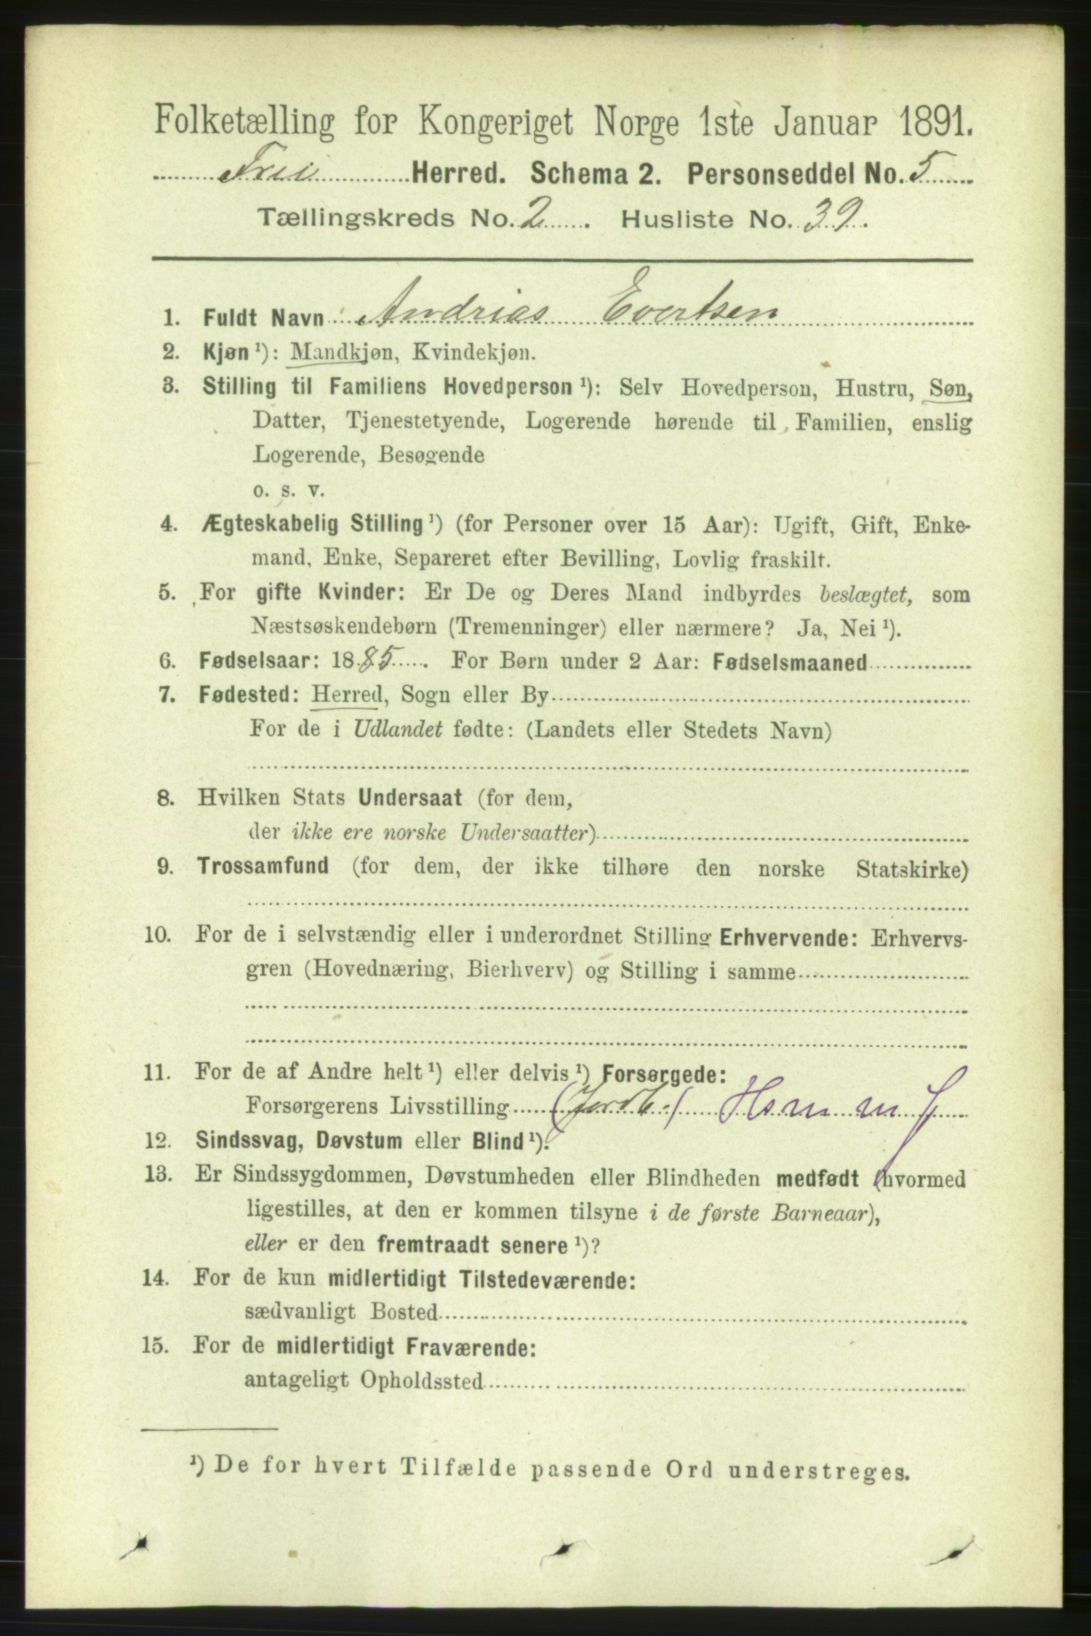 Folketælling for Kongeriget Norge 1ste Januar 1891.
Frei Herred. Schema 2. Personseddel No. 5
Tællingskreds No. 2. Husliste No. 39.
1. Fuldt Navn Andrias Evertsen
2. Kjøn ¹): Mandkjøn, Kvindekjøn.
3. Stilling til Familiens Hovedperson ¹): Selv Hovedperson, Hustru, Søn,
Datter, Tjenestetyende, Logerende hørende til Familien, enslig
Logerende, Besøgende
o. s. v.
4. Ægteskabelig Stilling ¹) (for Personer over 15 Aar): Ugift, Gift, Enke-
mand, Enke, Separeret efter Bevilling, Lovlig fraskilt.
5. For gifte Kvinder: Er De og Deres Mand indbyrdes beslægtet, som
Næstsøskendebørn (Tremenninger) eller nærmere? Ja, Nei ¹).
6. Fødselsaar: 1885. For Børn under 2 Aar: Fødselsmaaned
7. Fødested: Herred, Sogn eller By
For de i Udlandet fødte: (Landets eller Stedets Navn)
8. Hvilken Stats Undersaat (for dem,
der ikke ere norske Undersaatter)
9. Trossamfund (for dem, der ikke tilhøre den norske Statskirke)
10. For de i selvstændig eller i underordnet Stilling Erhvervende: Erhvervs-
gren (Hovednæring, Bierhverv) og Stilling i samme
11. For de af Andre helt ¹) eller delvis ¹) Forsørgede:
Forsørgerens Livsstilling (Jordb.) Hsm m J
12. Sindssvag, Døvstum eller Blind ¹).
13. Er Sindssygdommen, Døvstumheden eller Blindheden medfødt (hvormed
ligestilles, at den er kommen tilsyne i de første Barneaar),
eller er den fremtraadt senere ¹)?
14. For de kun midlertidigt Tilstedeværende:
sædvanligt Bosted
15. For de midlertidigt Fraværende:
antageligt Opholdssted
¹) De for hvert Tilfælde passende Ord understreges.